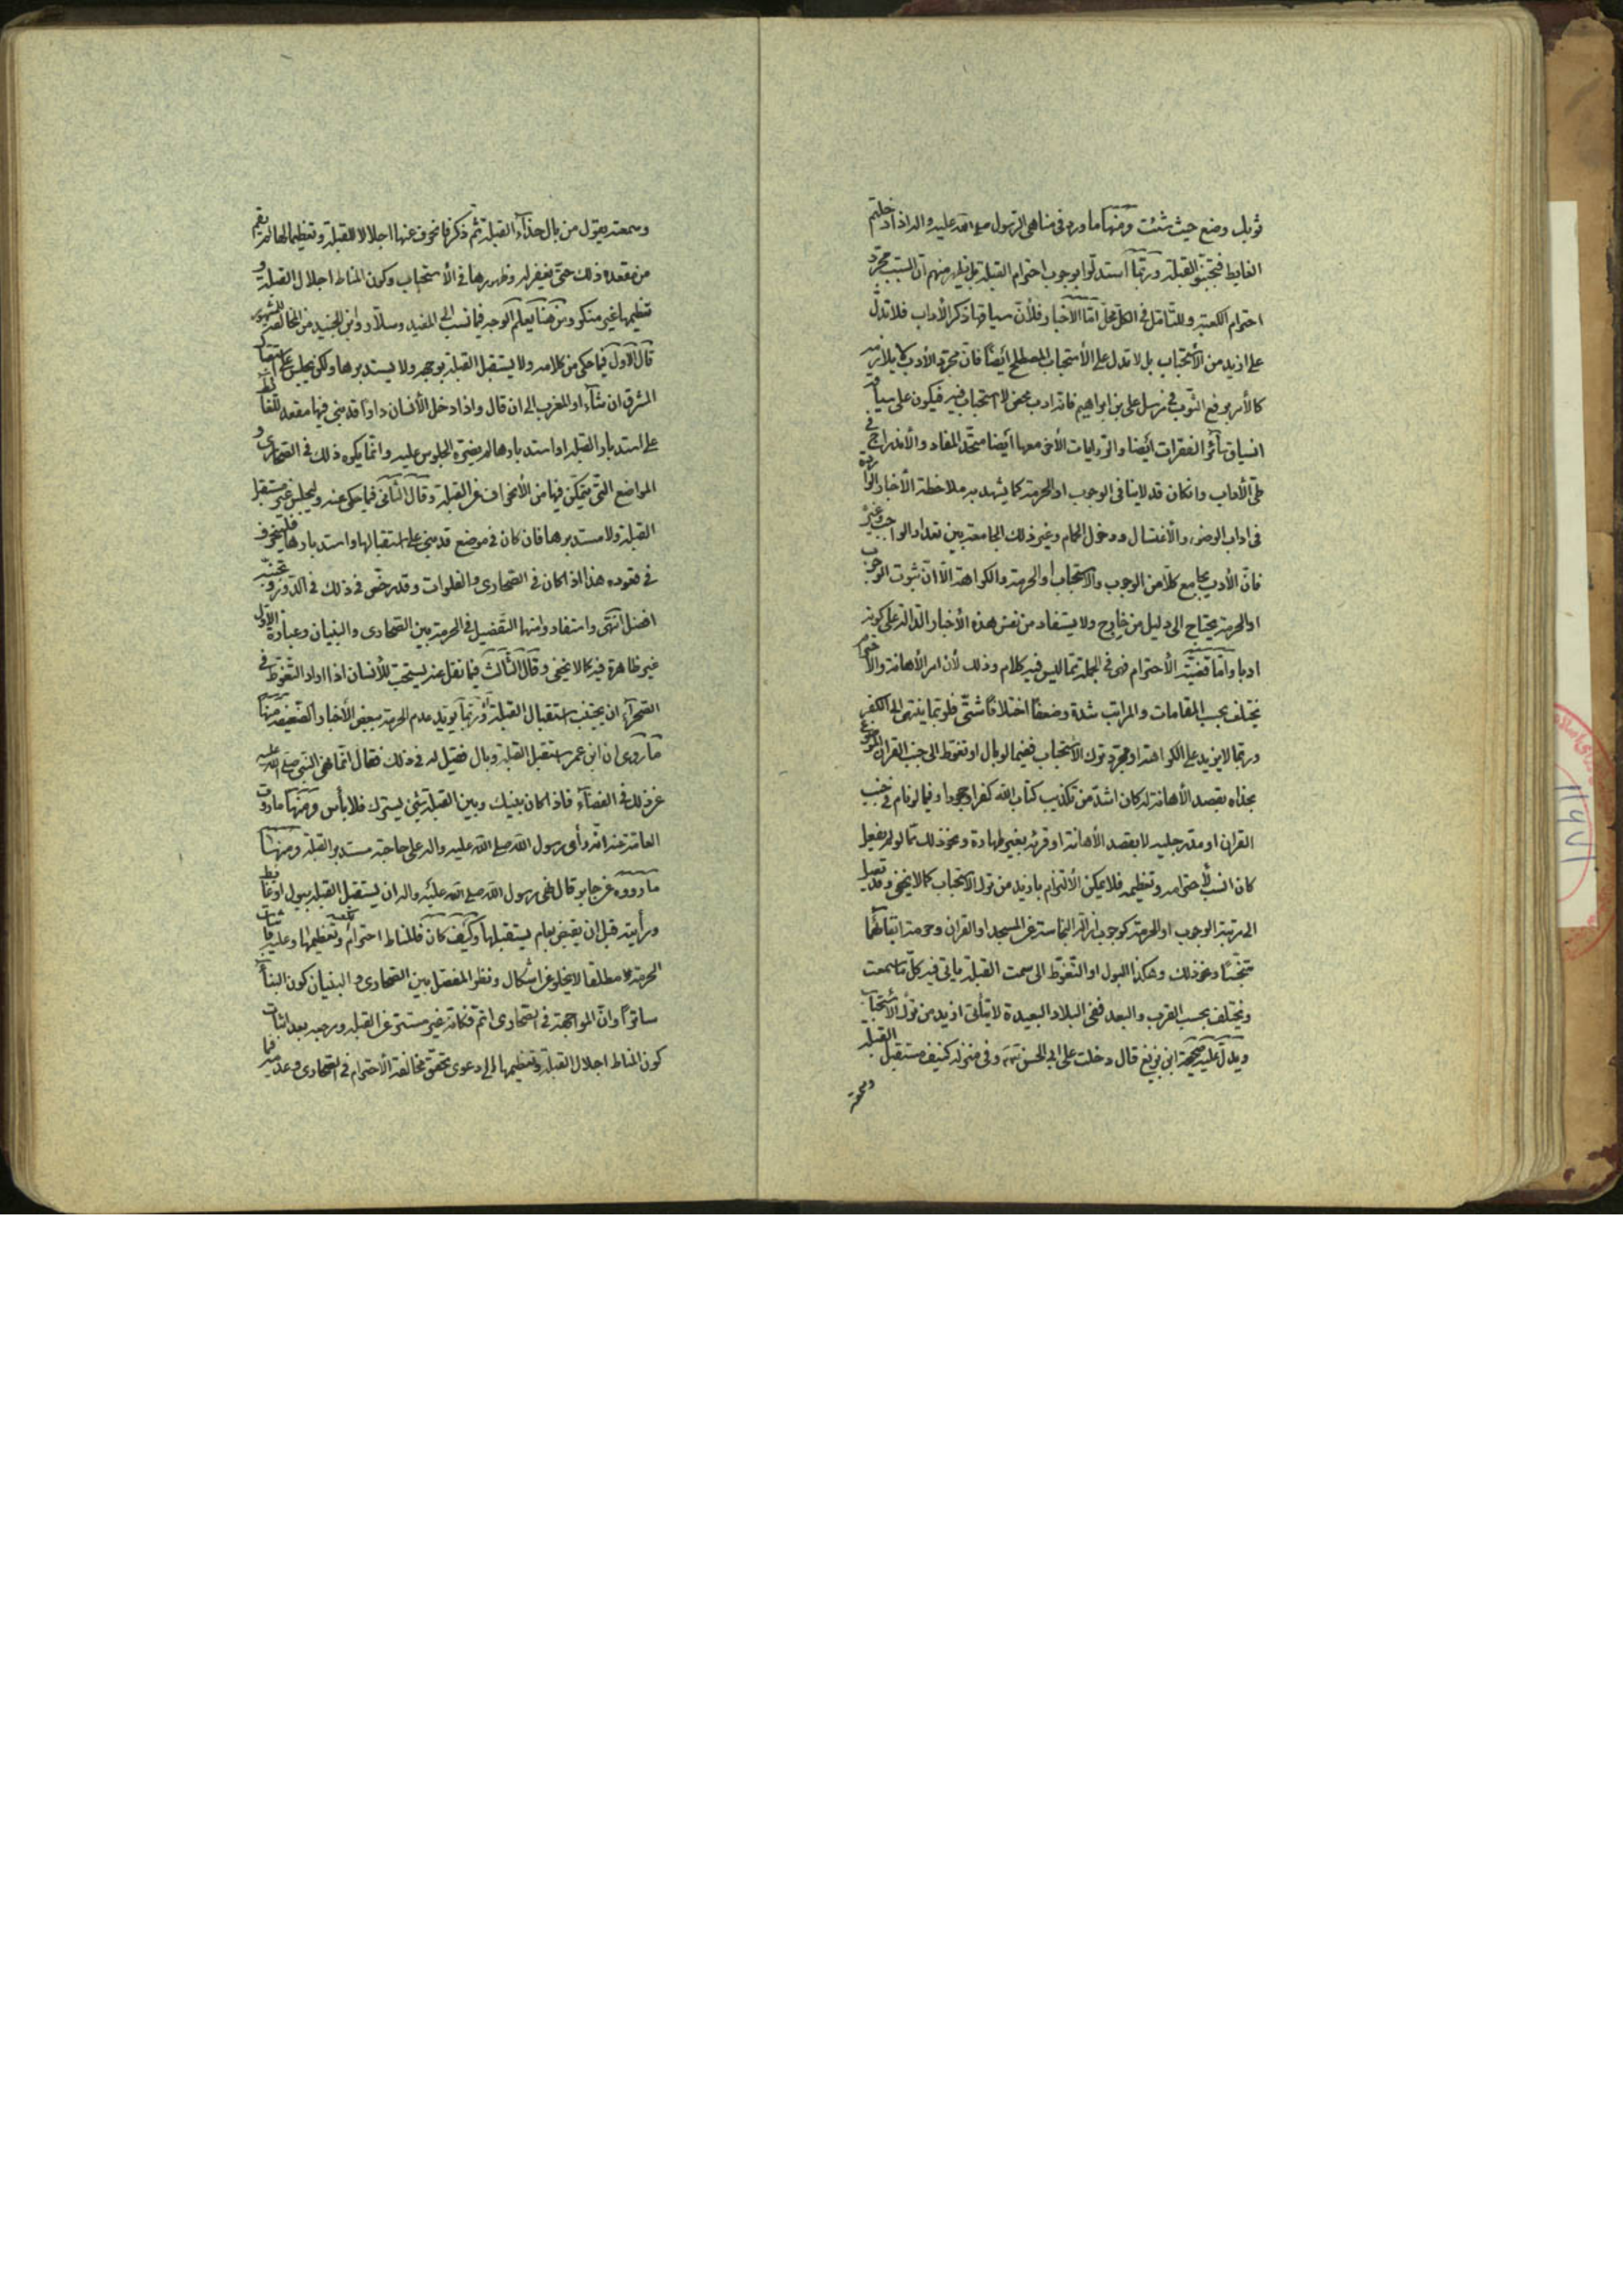 ثوبك وضع حيث شئت ومنها ما ورد في مناهي الرسول صلى الله عليه واله اذا دخلتم
الغايط فتجنبوا القبلة وربما استدلوا بوجوب احترام القبلة بل يظهر منهم ان السبب مجرد
احترام الكعبة وللتأمل في الكل مجال اما الاخبار فلأن سياقها ذكر الأداب فلا تدل
على ازيد من الأستحباب بل لا تدل على الأستحباب المصطلح ايضا فان مجرد الأدب لا يلازمه
كالأمر برفع الثوب في مرسل علي بن ابراهيم فانه ادب محض لا استحباب فيه فيكون على سياقه
انسياق سائر الفقرات ايضا والروايات الأخر معها ايضا متحد المفاد والأندراج في
طي الأداب وان كان قد لا ينافي الوجوب او الحرمة كما يشهد به ملاحظة الأخبار الواردة
في اداب الوضوء والأغتسال ودخول الحمام وغير ذلك الجامعة بين تعداد الواجب وغيره
فان الأدب يجامع كلا من الوجوب والاستحباب او الحرمة والكراهة الا ان ثبوت الوجوب
او الحرمة يحتاج الى دليل من خارج ولا يستفاد من نفس هذه الأخبار الدالة على كونه
ادبا واما قضية الأحترام فهى في الجملة مما ليس فيه كلام وذلك لأن امر الأهانة والأحترام
يختلف بحسب المقامات والمراتب شدة وضعفا اختلافا شتى فلربما ينتهى الى الكفر
وربما لا يزيد على الكراهة او مجرد ترك الأستحباب ففيما لو بال او تغوط الى جنب القران الموضوع
بحذاه بقصد الأهانة له كان اشد من تكذيب كتاب الله كفرا وجحودا وفيما لو نام في جنب
القران او مد رجليه لا بقصد الأهانة او قرئه بغير طهارة ونحو ذلك مما لو لم يفعل
كان انسب لأحترامه وتعظيمه فلا يمكن الألتزام بازيد من ترك الاستحباب كما لا يخفى وقد يصل
الى مرتبة الوجوب او الحرمة كوجوب ازالة النجاسة عن المسجد او القران وحرمة ابقائهما
متنجسا ونحو ذلك وهكذا البول او التغوط الى سمت القبلة ياتي فيه كل ما سمعت
ويختلف بحسب القرب والبعد ففي البلاد البعيدة لا يتأتى ازيد من ترك الأستحباب
ويدل عليه صحيحة ابن بزيع قال دخلت على ابي الحسن وفي منزله كنيف مستقبل القبلة
وسمعته
وسمعته يقول من بال حذاء القبلة ثم ذكر فانحرف عنها اجلالا للقبلة وتعظيما لها لم يقم
من مقعده ذلك حتى يغفر له وظهورها في الأستحباب وكون المناط اجلال القبلة و
تعظيمها غير منكر ومن هنا يعلم الوجه فيما نسب الى المفيد وسلار وابن الجنيد من المخالفة للمشهور
قال الأول فيما حكى من كلامه ولا يستقبل القبلة بوجهه ولا يستدبرها ولكن يجلس على استقبال
المشرق ان شاء او المغرب الى ان قال واذا دخل الأنسان دارا قد بنى فيها مقعد للغائط
على استدبار القبلة او استدبارها لم يضره الجلوس عليه وانما يكره ذلك في الصحارى و
المواضع التي يتمكن فيها من الأنحراف عن القبلة وقال الثاني فيما حكى عنه وليجلس غير مستقبل
القبلة ولا مستدبرها فان كان في موضع قد بنى على استقبالها واستدبارها فلينحرف
في قعوده هذا اذا كان في الصحارى والفلوات وقد رخص في ذلك في الدور وتجنبه
افضل انتهى واستفادوا منها التفضيل في الحرمة بين الصحارى والبنيان وعبارة الأول
غير ظاهرة فيه كما لا يخفى وقال الثالث فيما نقل عنه يستحب للأنسان اذا اراد التغوط في
الصحراء ان يجتنب استقبال القبلة وربما يؤيد عدم الحرمة ببعض الأخبار الضعيفة منها
ما روى ان ابن عمر استقبل القبلة وبال فقيل له في ذلك فقال انما نهى النبي صلى الله عليه
عن ذلك في الفضاء فاذا كان بينك وبين القبلة شئ يسترك فلا بأس ومنها ما روت
العامة عنه انه رأى رسول الله صلى الله عليه واله على حاجته مستدبر القبلة ومنها
ما رووه عن جابر قال نهى رسول الله صلى الله عليه واله ان يستقبل القبلة ببول او غائط
ورأيته قبل ان يقبض بعام يستقبلها وكيف كان فالمناط احترام الكعبة وتعظيمها وعليه فاثبات
الحرمة مطلقا لا يخلو عن اشكال ونظر المفصل بين الصحارى والبنيان كون البناء
ساترا وان المواجهة في الصحارى اتم فكانه غير مستتر عن القبلة ومرجعه بعد اثبات
كون المناط اجلال القبلة وتعظيمها الى دعوى تحقق مخالفة الأحترام في الصحارى وعدمه فيما